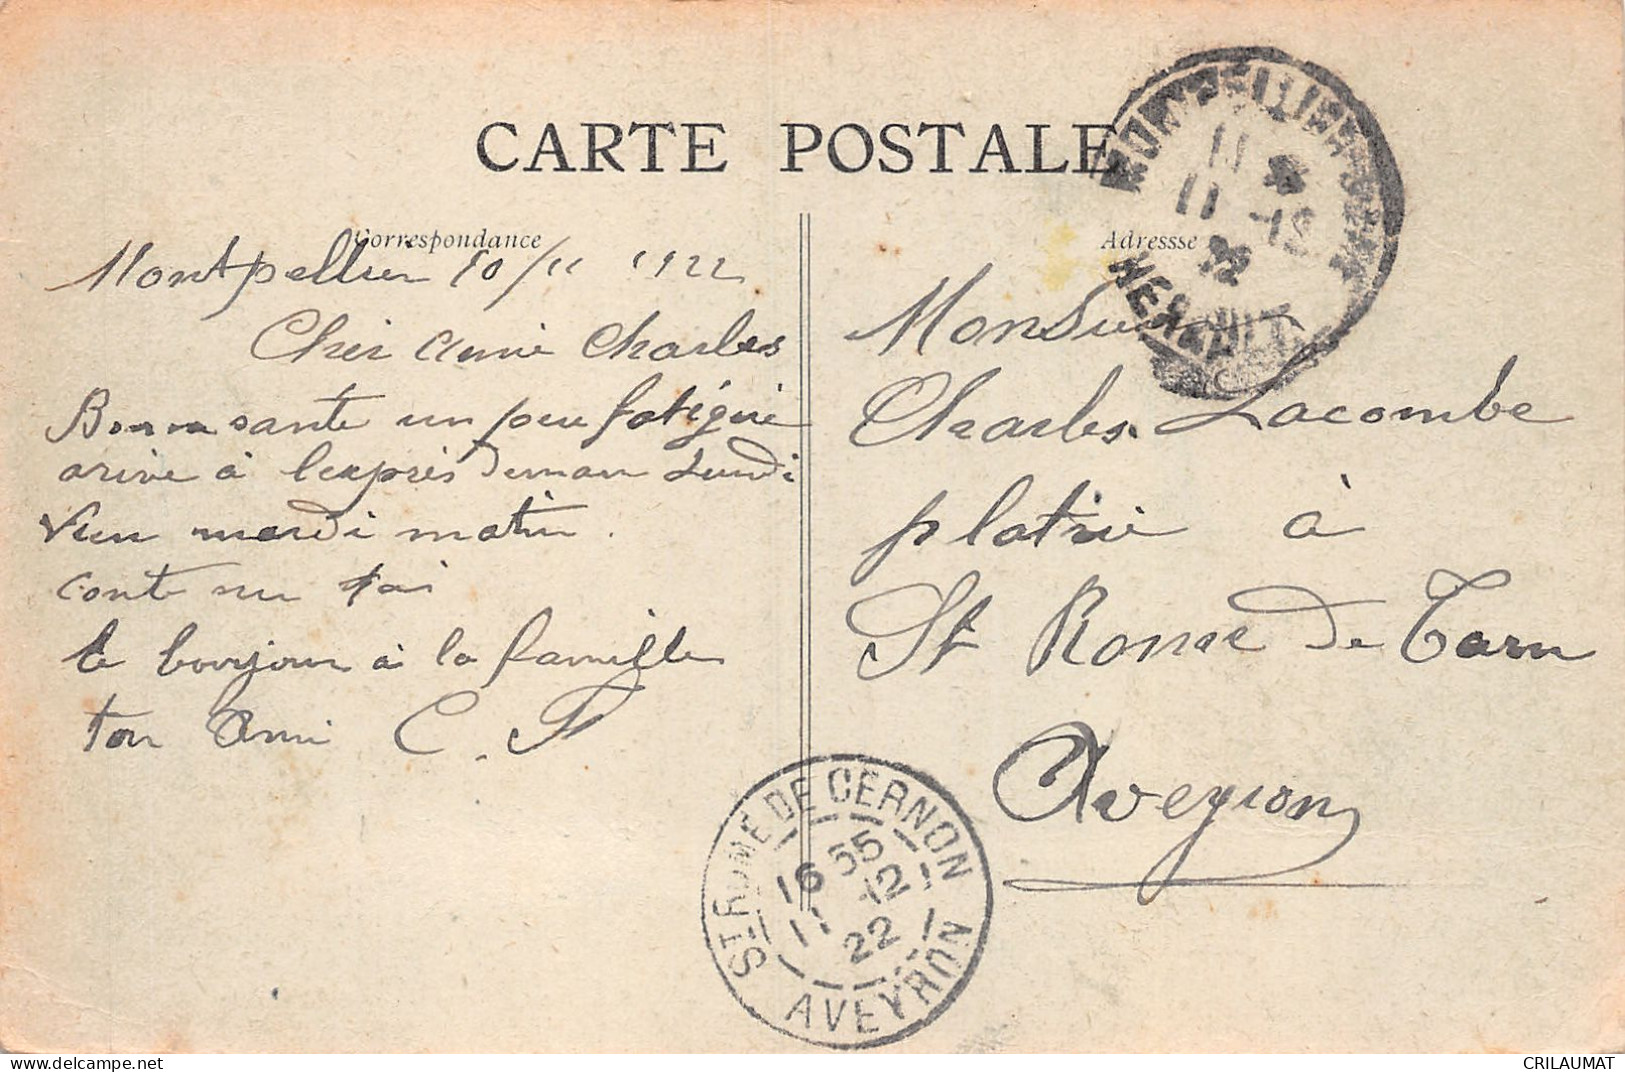 CARTE POSTALE
Correspondance
Adressse
Montpellier 10/11 1922
Cher amie Charles
Bonne sante un peu fatiguie
arive à l'exprès Demain Lundi
Vien mardi matin.
le bonjour à la famille
ton Ami C. F
Monsieur
Charles Lacombe
platrie à
St Rome De Tarn
Aveyron
MONTPELLIER
11
11 -12
22
HERAULT
ST ROME DE CERNON
16 55
11 12
22
AVEYRON
CRILAUMAT